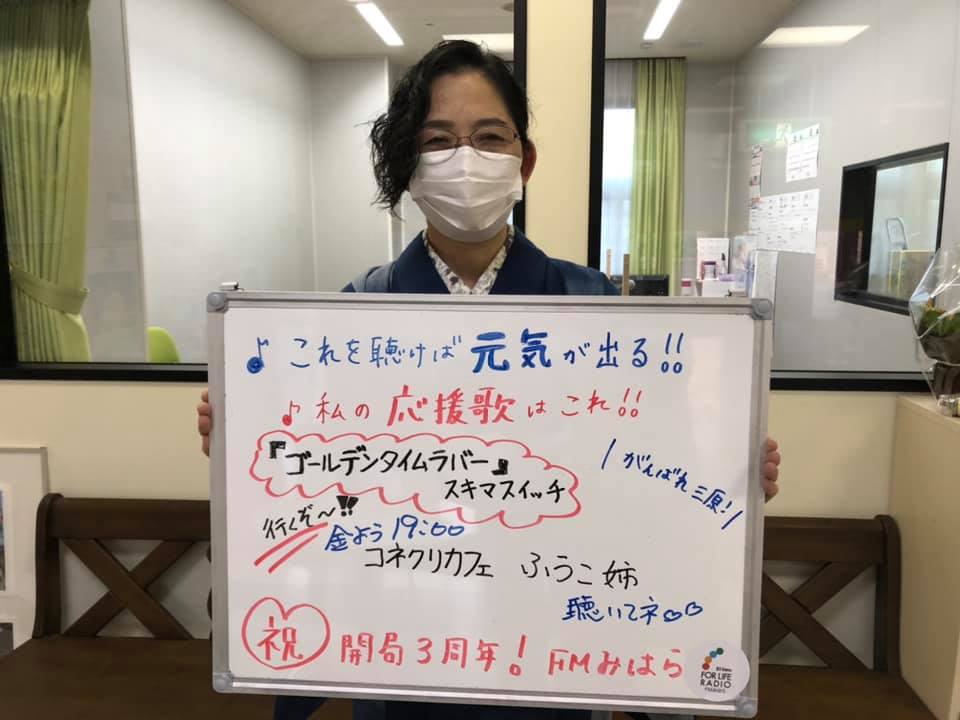 ♪これを聴けば元気が出る!!
♪私の応援歌はこれ!!
『ゴールデンタイムラバー』
スキマスイッチ
\がんばれ三原!/
行くぞ〜!!
金よう19:00
コネクリカフェ ふうこ姉
聴いてネ♡♡
祝 開局3周年! FMみはら
FOR LIFE
RADIO